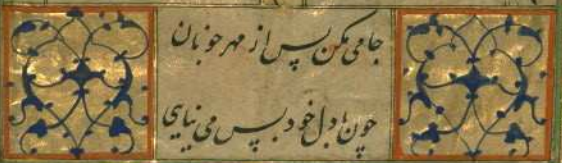 جامی مکن پس از مهر خوبان
چون با دل خود بس می نیایی